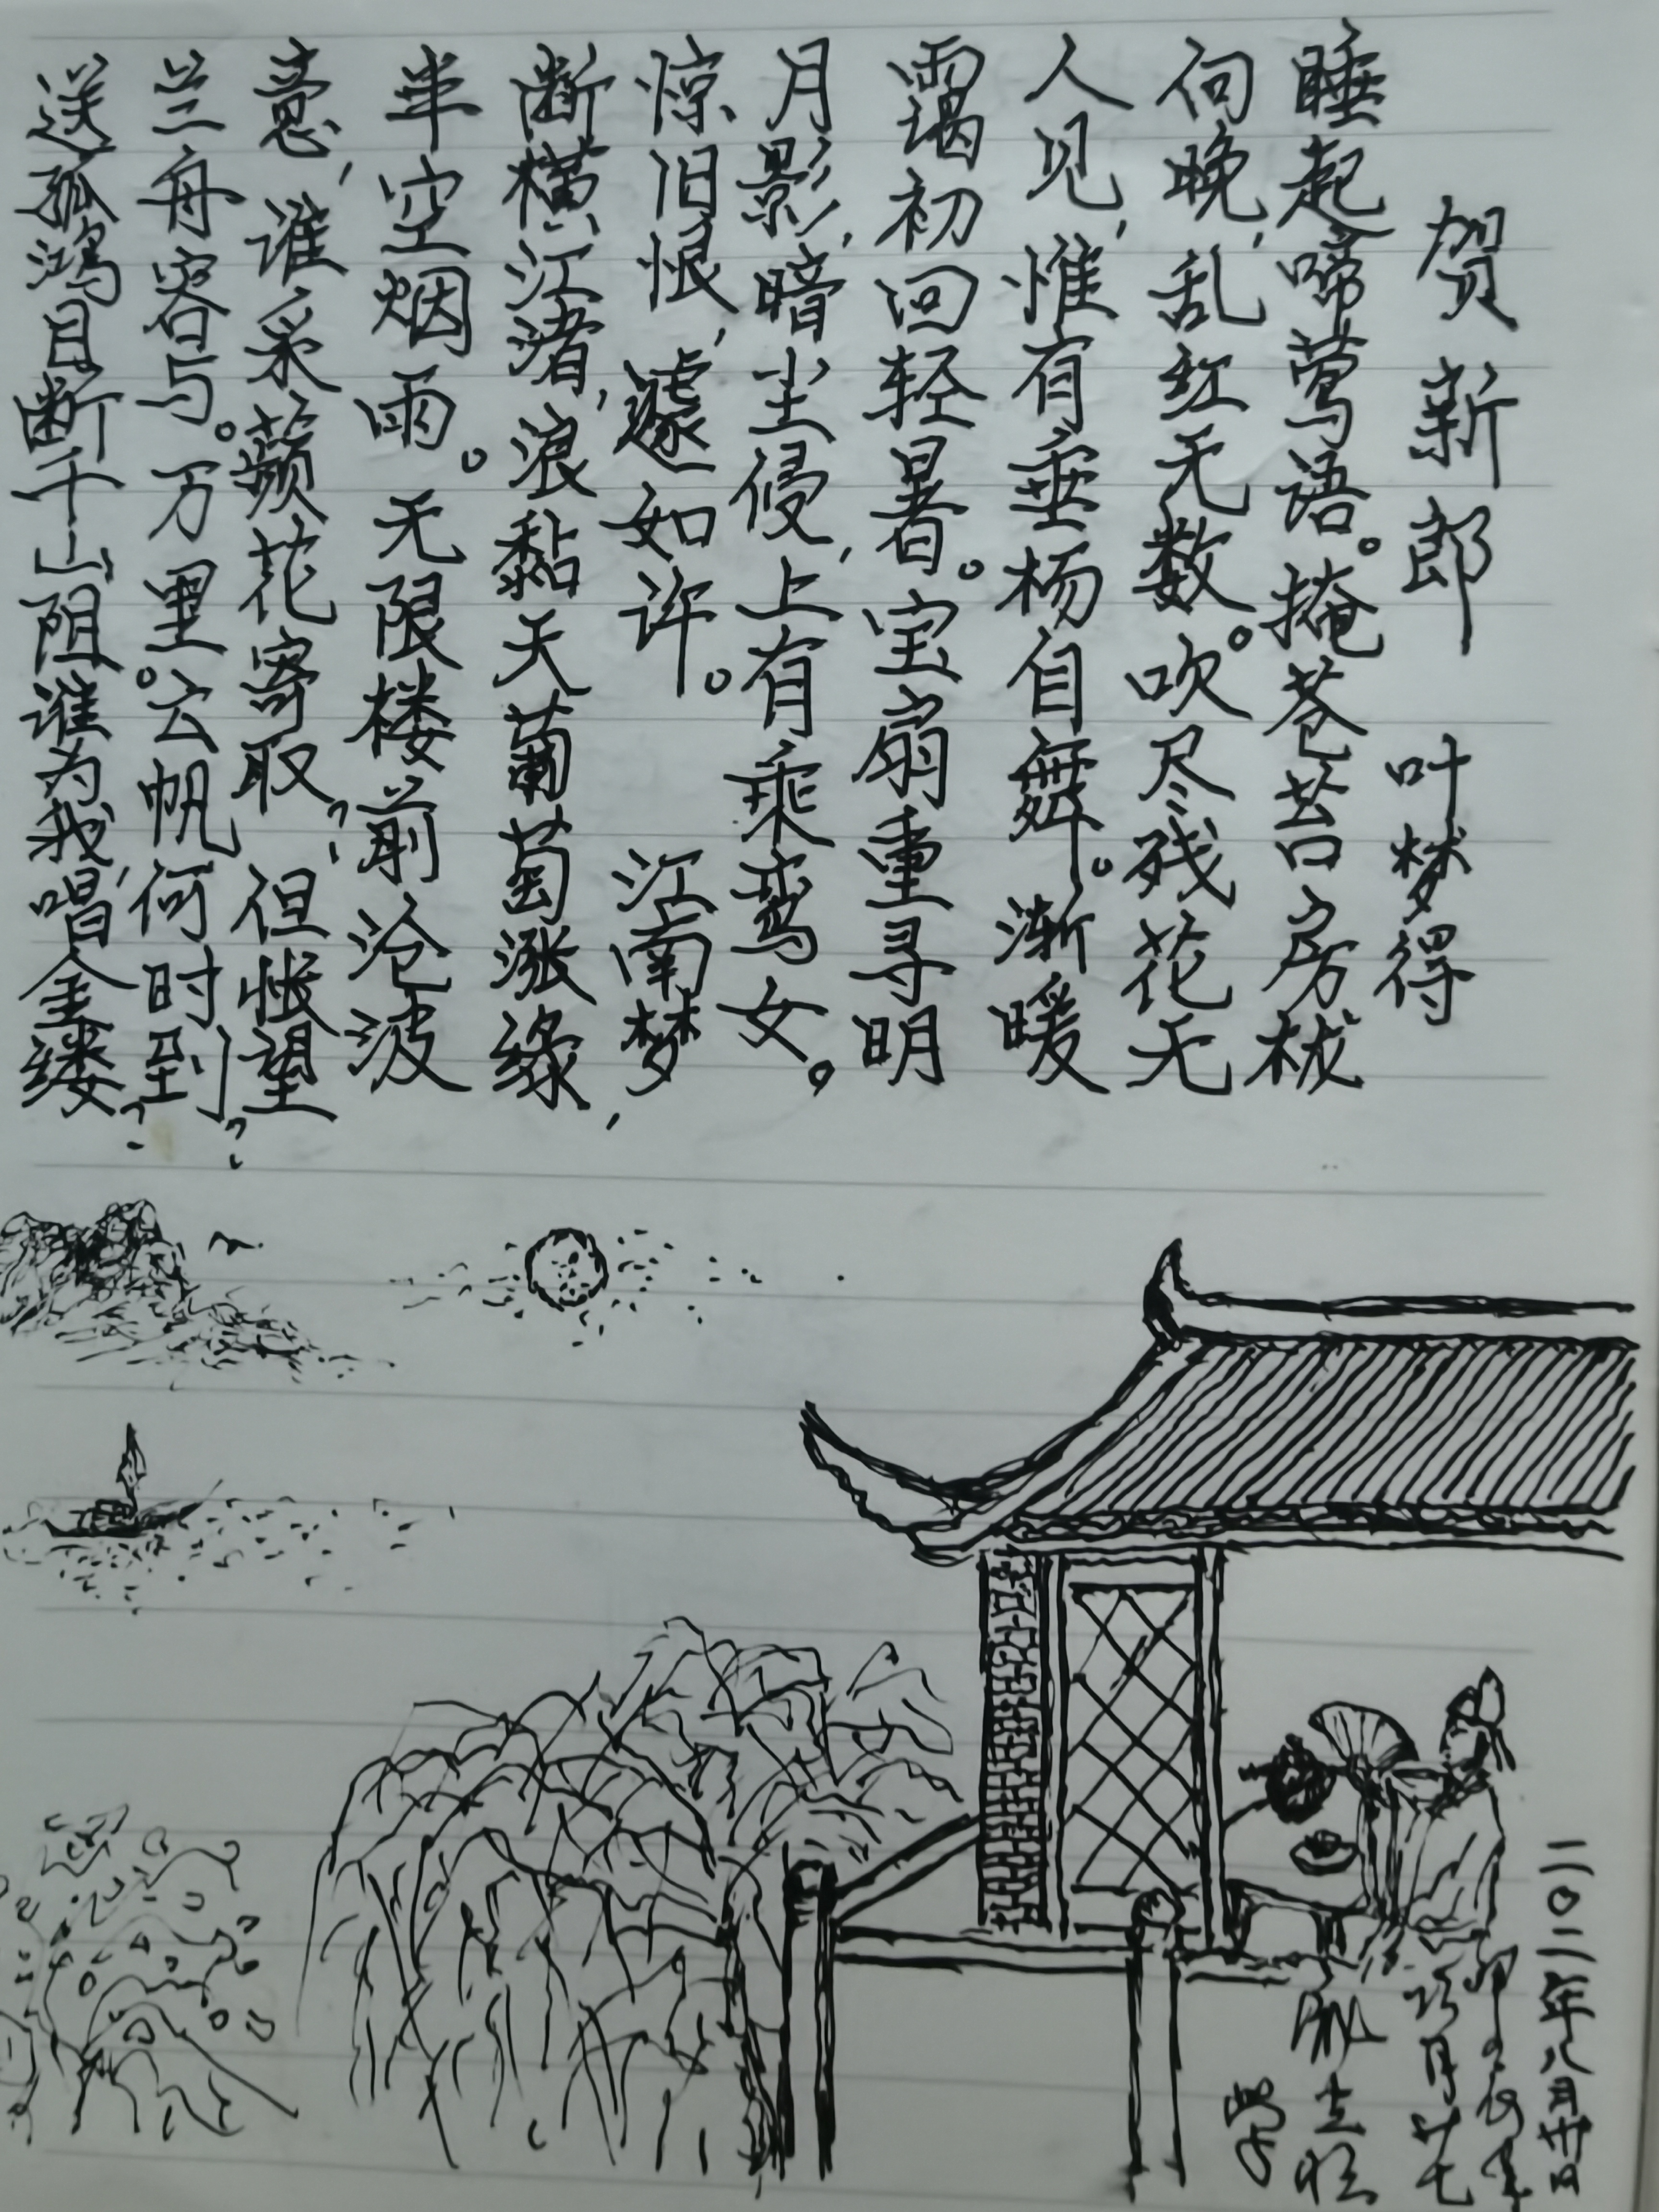 贺新郎 叶梦得
睡起啼莺语。掩苍苔房栊
向晚，乱红无数。吹尽残花无
人见，惟有垂杨自舞。渐暖
霭初回轻暑。宝扇重寻明
月影，暗尘侵，上有乘鸾女。
惊旧恨，遽如许。 江南梦
断横江渚，浪黏天葡萄涨绿，
半空烟雨。无限楼前沧波
意，谁采蘋花寄取？但怅望
兰舟容与。万里。云帆何时到？
送孤鸿目断千山阻谁为我，唱金缕？
二〇二一年八月卅日